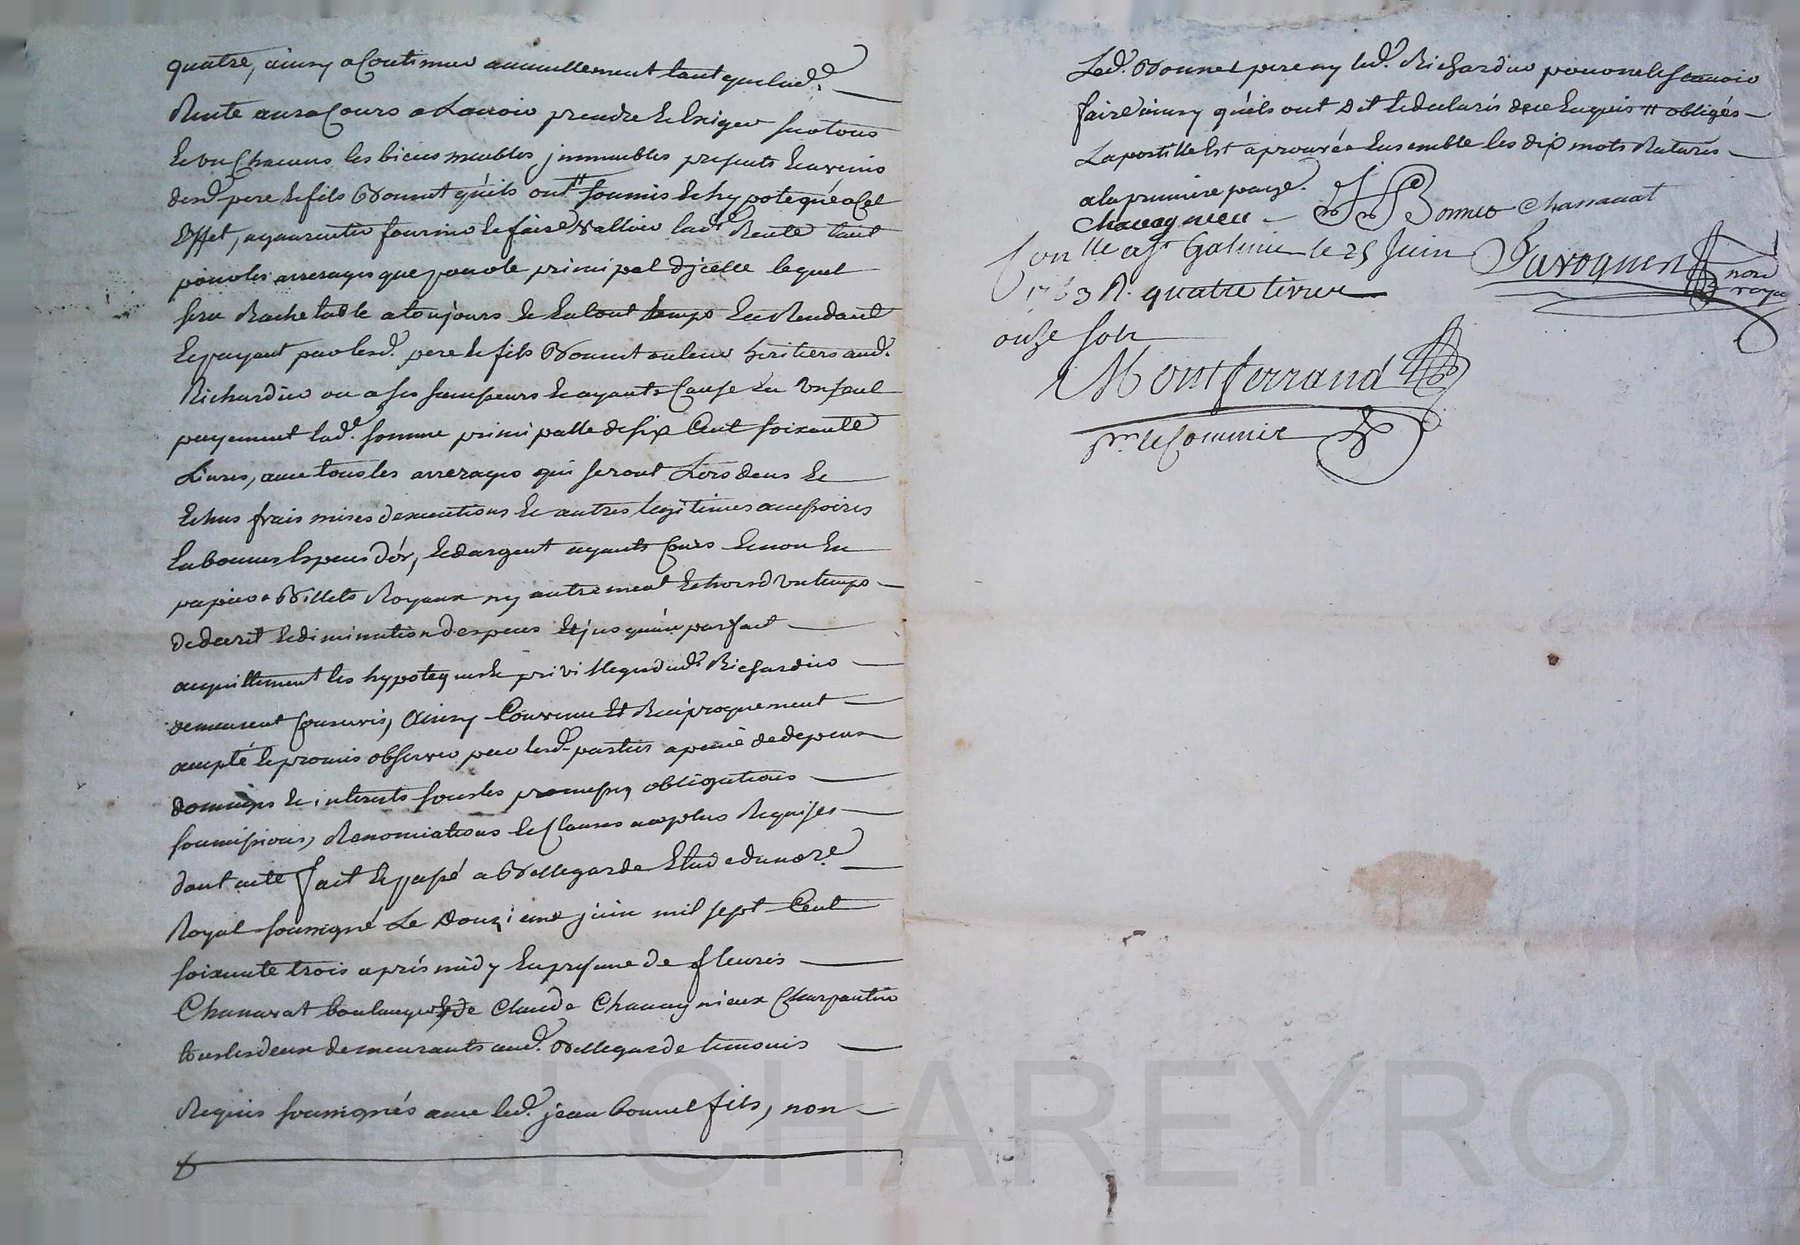 quatre, ainsy a Continuer annuellement tant que lad.e
Rente aura Cours a Lavoir prendre et Exiger sur tous
et un Chacuns les biens meubles jmmeubles presents et avenir
desd. pere et fils Bonnet qu'ils ont # soumis et hypotequé a Cet
Effet, a fournir et faire Valloir lad.e Rente tant
pour les arrerages que pour le principal d'jcelle lequel
sera Rachetable a toujours et en tout temps En Rendant
et payant par lesd. pere et fils Bonnet ou leur heritiers aud.
Richardier ou a ses successeurs et ayants Cause En un seul
payement lad.e somme principalle de six Cent soixante
Livres, avec tous les arrerages qui seront Lors deus et
Echus frais mises d'executions et autres legitimes accessoires
En bonnes Especes d'or, et d'argent ayants Cours et non En
papiers Billets Royaux ny autrement et hors d'un temps
de decrit et diminution d'especes et jusqu'au parfait
acquittement les hypoteques et privilleges dud. Richardier
demeurent Conservés, Ainsy Convenu et Reciproquement
accepté et promis observer par lesd. parties a peine de depens
domages et interets sous les promesses, obligations
soumissions, Renonciations et Clauses au plus Requises
dont acte fait et passé a Bellegarde Etude du no.re
Royal soussigné Le Douzieme juin mil sept Cent
soixante trois aprés midy En presence de fleuris
Chanavat boulanger et de Claude Chavagnieux Charpentier
tous les deux demeurants aud. Bellegarde temoins
Requis soussignés avec led. jean bonnet fils, non
Led. Bonnet pere ny led. Richardier pour ne le scavoir
faire ainsy qu'ils ont Dit et declarés de ce Enquis # obligés
La postille Est aprouvée Ensemble les dix mots Raturés
a la premiere page.
Chavagnieu Bonnet Chanavat
Con.lle a St Galmier le 25 Juin Favoquen
1763 R. quatre livres no.re royal
onze sols
Montferrand
p.r le Commis
Pascal CHAREYRON